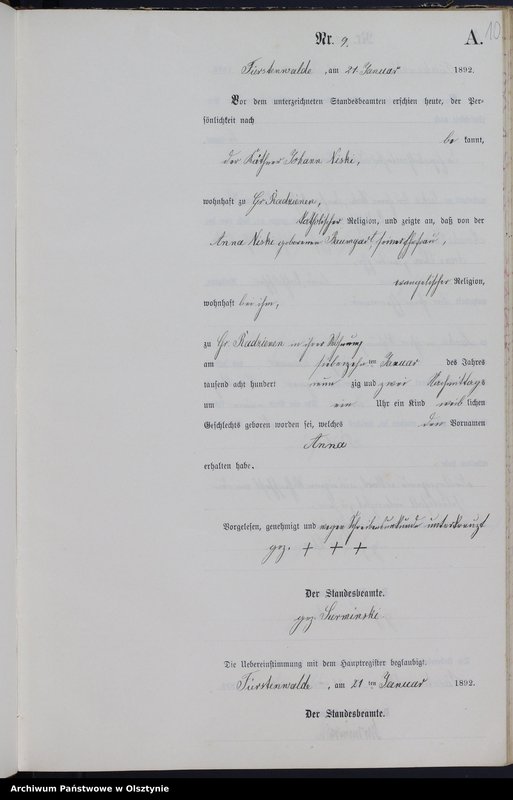 10
Nr. 9. A.
Fürstenwalde, am 21 Januar 1892.
Vor dem unterzeichneten Standesbeamten erschien heute, der Per-
sönlichkeit nach
be kannt,
der Käthner Johann Neski,
wohnhaft zu Gr. Radzienen,
katholischer Religion, und zeigte an, daß von der
Anna Neski geborenen Baumgart seiner Ehefrau,
evangelischer Religion,
wohnhaft bei ihm,
zu Gr. Radzienen in ihrer Wohnung
am siebenzehnten Januar des Jahres
tausend acht hundert neun zig und zwei Nachmittags
um ein Uhr ein Kind weib lichen
Geschlechts geboren worden sei, welches den Vornamen
Anna
erhalten habe.
Vorgelesen, genehmigt und wegen Schreibensunkunde unterkreuzt
gez. + + +
Der Standesbeamte.
gez. Surminski.
Die Uebereinstimmung mit dem Hauptregister beglaubigt.
Fürstenwalde, am 21 ten Januar 1892.
Der Standesbeamte.
Archiwum Państwowe w Olsztynie